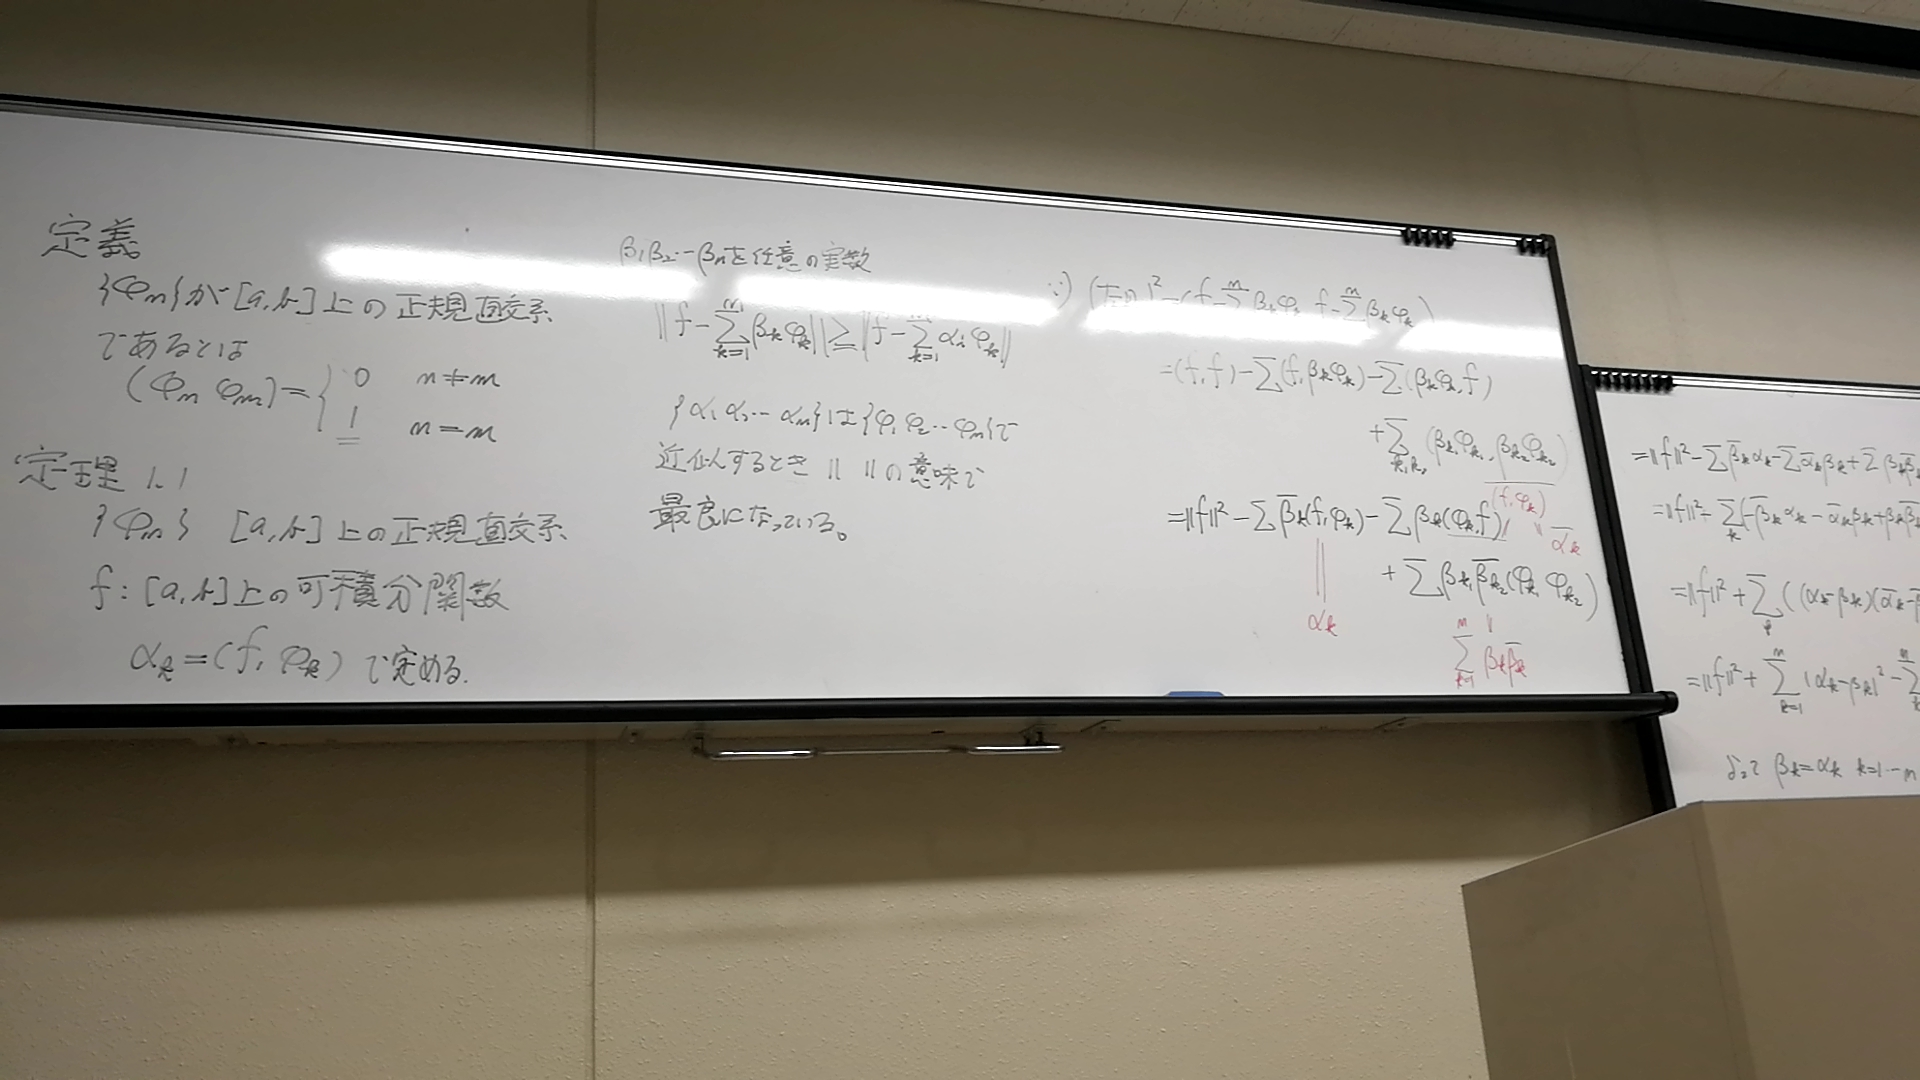 定義
{φn}が[a,b]上の正規直交系
であるとは
(φn φm)={ 0 n≠m
1 n=m
定理 1.1
{φn} [a,b]上の正規直交系
f:[a,b]上の可積分関数
αk=(f, φk)で定める.
β1β2…βnを任意の実数
‖f-Σ_{k=1}^{n}βkφk‖≧‖f-Σ_{k=1}αkφk‖
{α1 α2…αn}は{φ1 φ2…φn}で
近似するとき‖ ‖の意味で
最良になっている。
∵) (左の)²=(f-Σ^{n}βkφk, f-Σ^{n}βkφk)
=(f,f)-Σ(f,βkφk)-Σ(βkφk,f)
+Σ_{k1,k2}(βk1φk1,βk2φk2)
=‖f‖²-Σβ̅k(f,φk)-Σβk(φk,f)
(f,φk)
‖
α̅k
‖
αk
+Σβk1β̅k2(φk1 φk2)
‖
Σ_{k=1}^{n}βkβ̅k
=‖f‖²-Σβ̅kαk-Σα̅kβk+Σβkβ̅k
=‖f‖²+Σ_{k}(-β̅kαk-α̅kβk+βkβ̅k
=‖f‖²+Σ((αk-βk)(α̅k-
=‖f‖²+Σ_{k=1}^{n}|αk-βk|²-Σ
よって βk=αk k=1…n